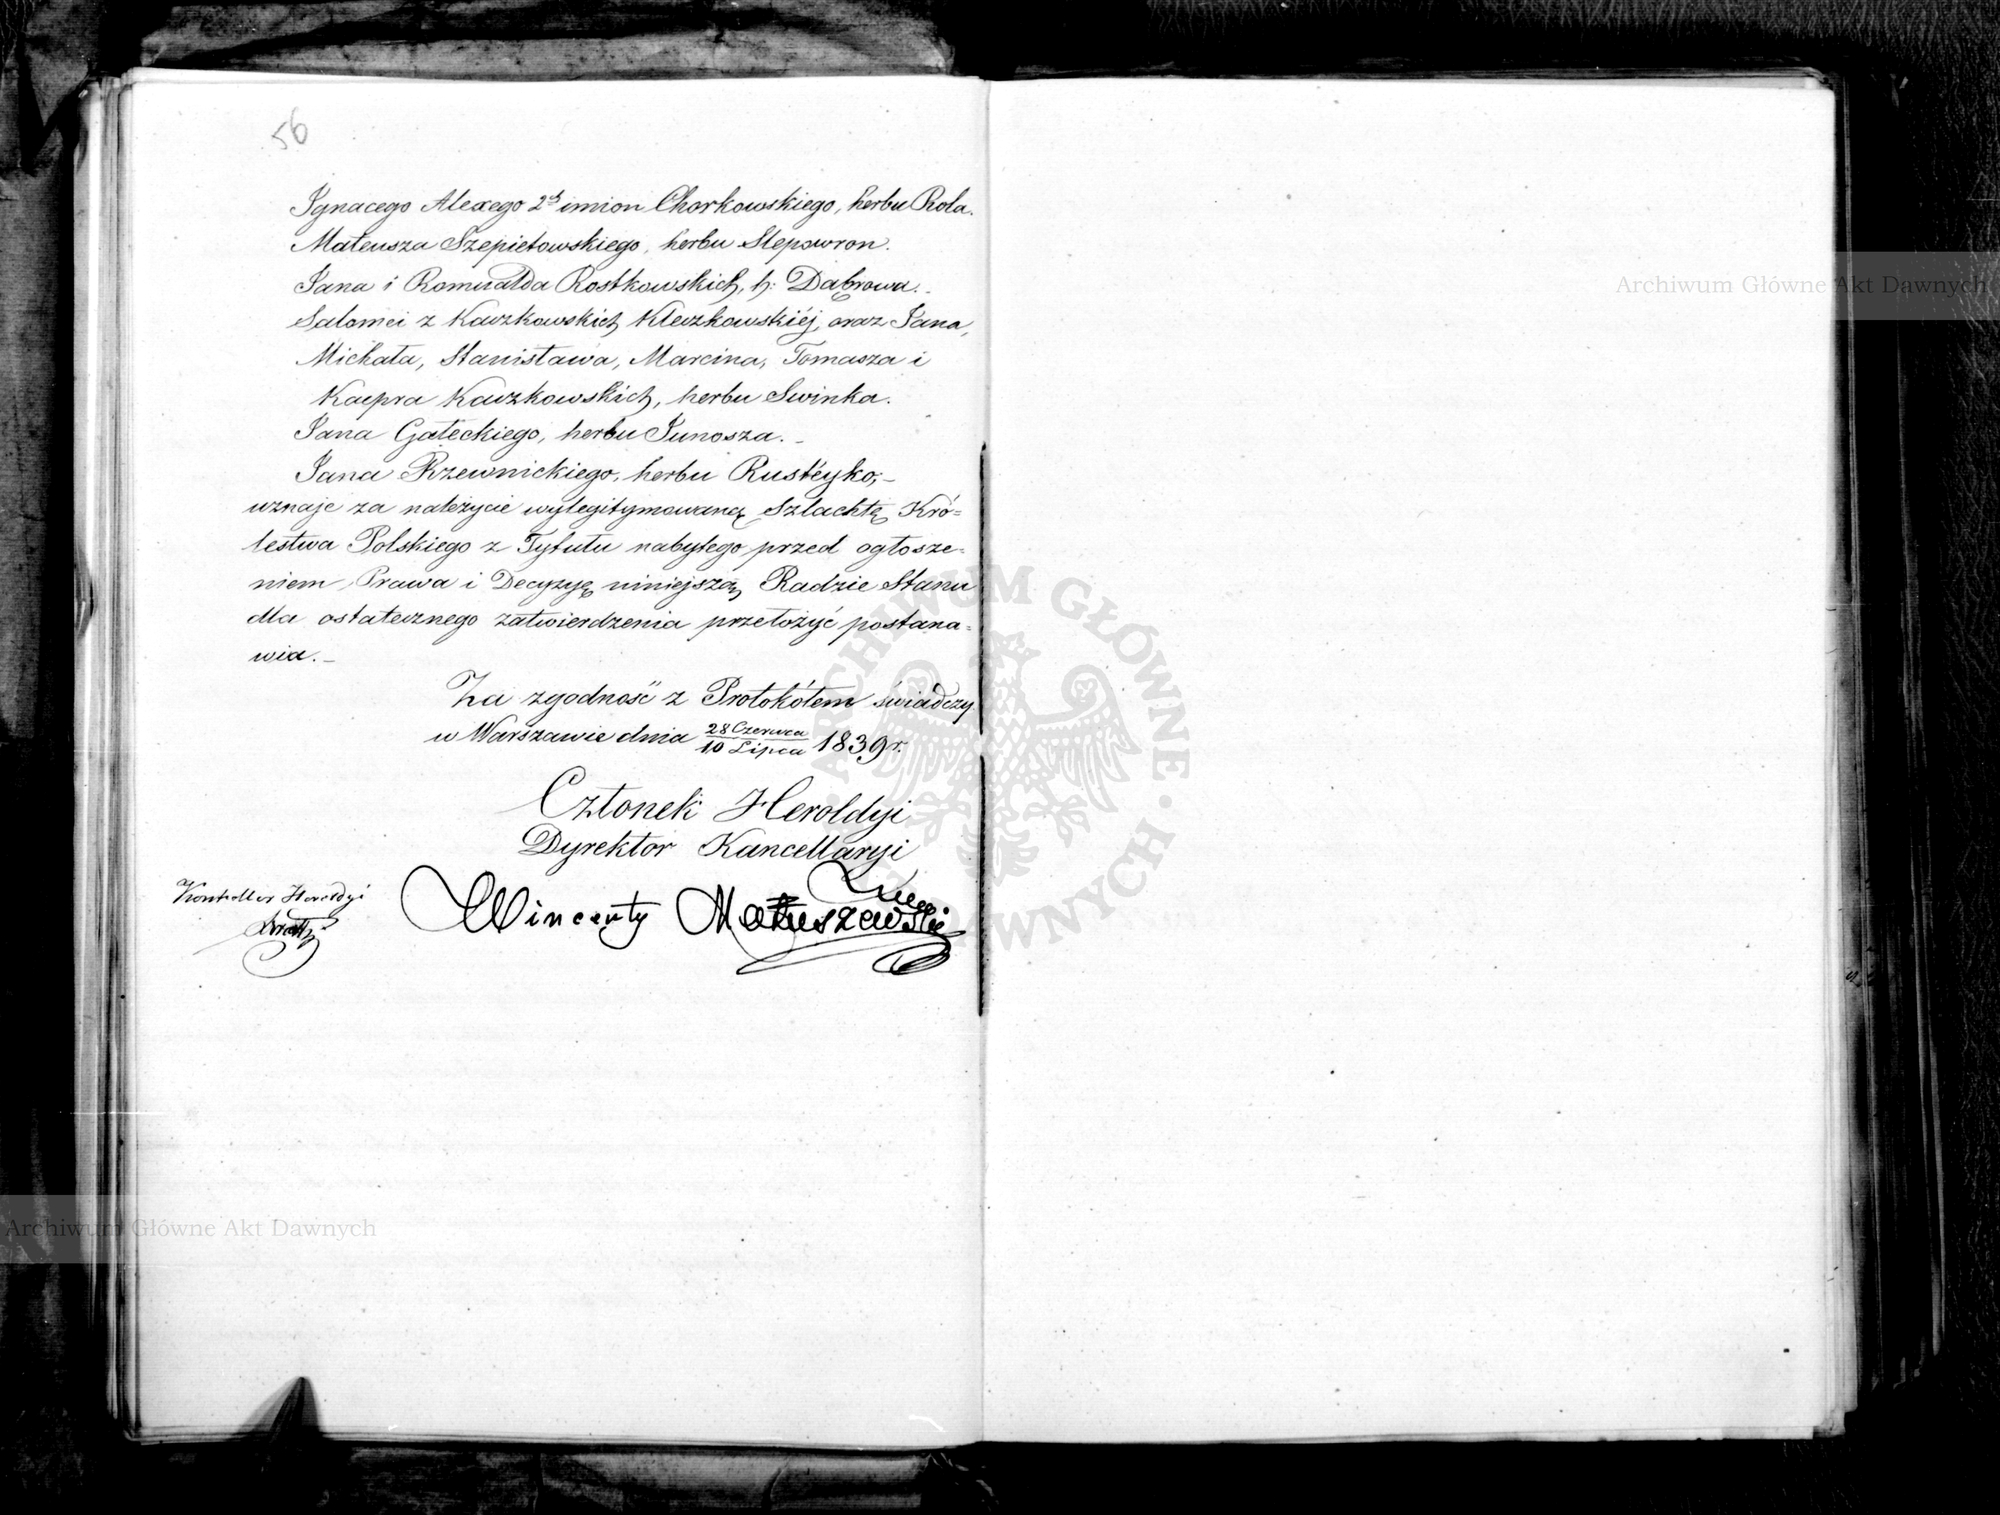 56
Ignacego Alexego 2ch imion Chorkowskiego, herbu Rola.
Mateusza Szepietowskiego, herbu Slepowron.
Jana i Romualda Rostkowskich, h: Dąbrowa.
Salomei z Kaczkowskich Kleczkowskiéj, oraz Jana,
Michała, Stanisława, Marcina, Tomasza i
Kacpra Kaczkowskich, herbu Swinka.
Jana Gałeckiego, herbu Junosza.
Jana Rzewnickiego, herbu Rustéyko;
uznaje za należycie wylegitymowaną Szlachtę Kró=
lestwa Polskiego z Tytułu nabytego przed ogłosze=
niem Prawa i Decyzyę niniejszą Radzie Stanu
dla ostatecznego zatwierdzenia przełożyć postana=
wia.
Za zgodność z Protokółem świadczy
w Warszawie dnia 28 Czerwca / 10 Lipca 1839 r.
Członek Heroldyi
Dyrektor Kancellaryi
Wincenty Matuszewski
Kontroller Heroldyi
Archiwum Główne Akt Dawnych
Archiwum Główne Akt Dawnych
ARCHIWUM GŁÓWNE AKT DAWNYCH